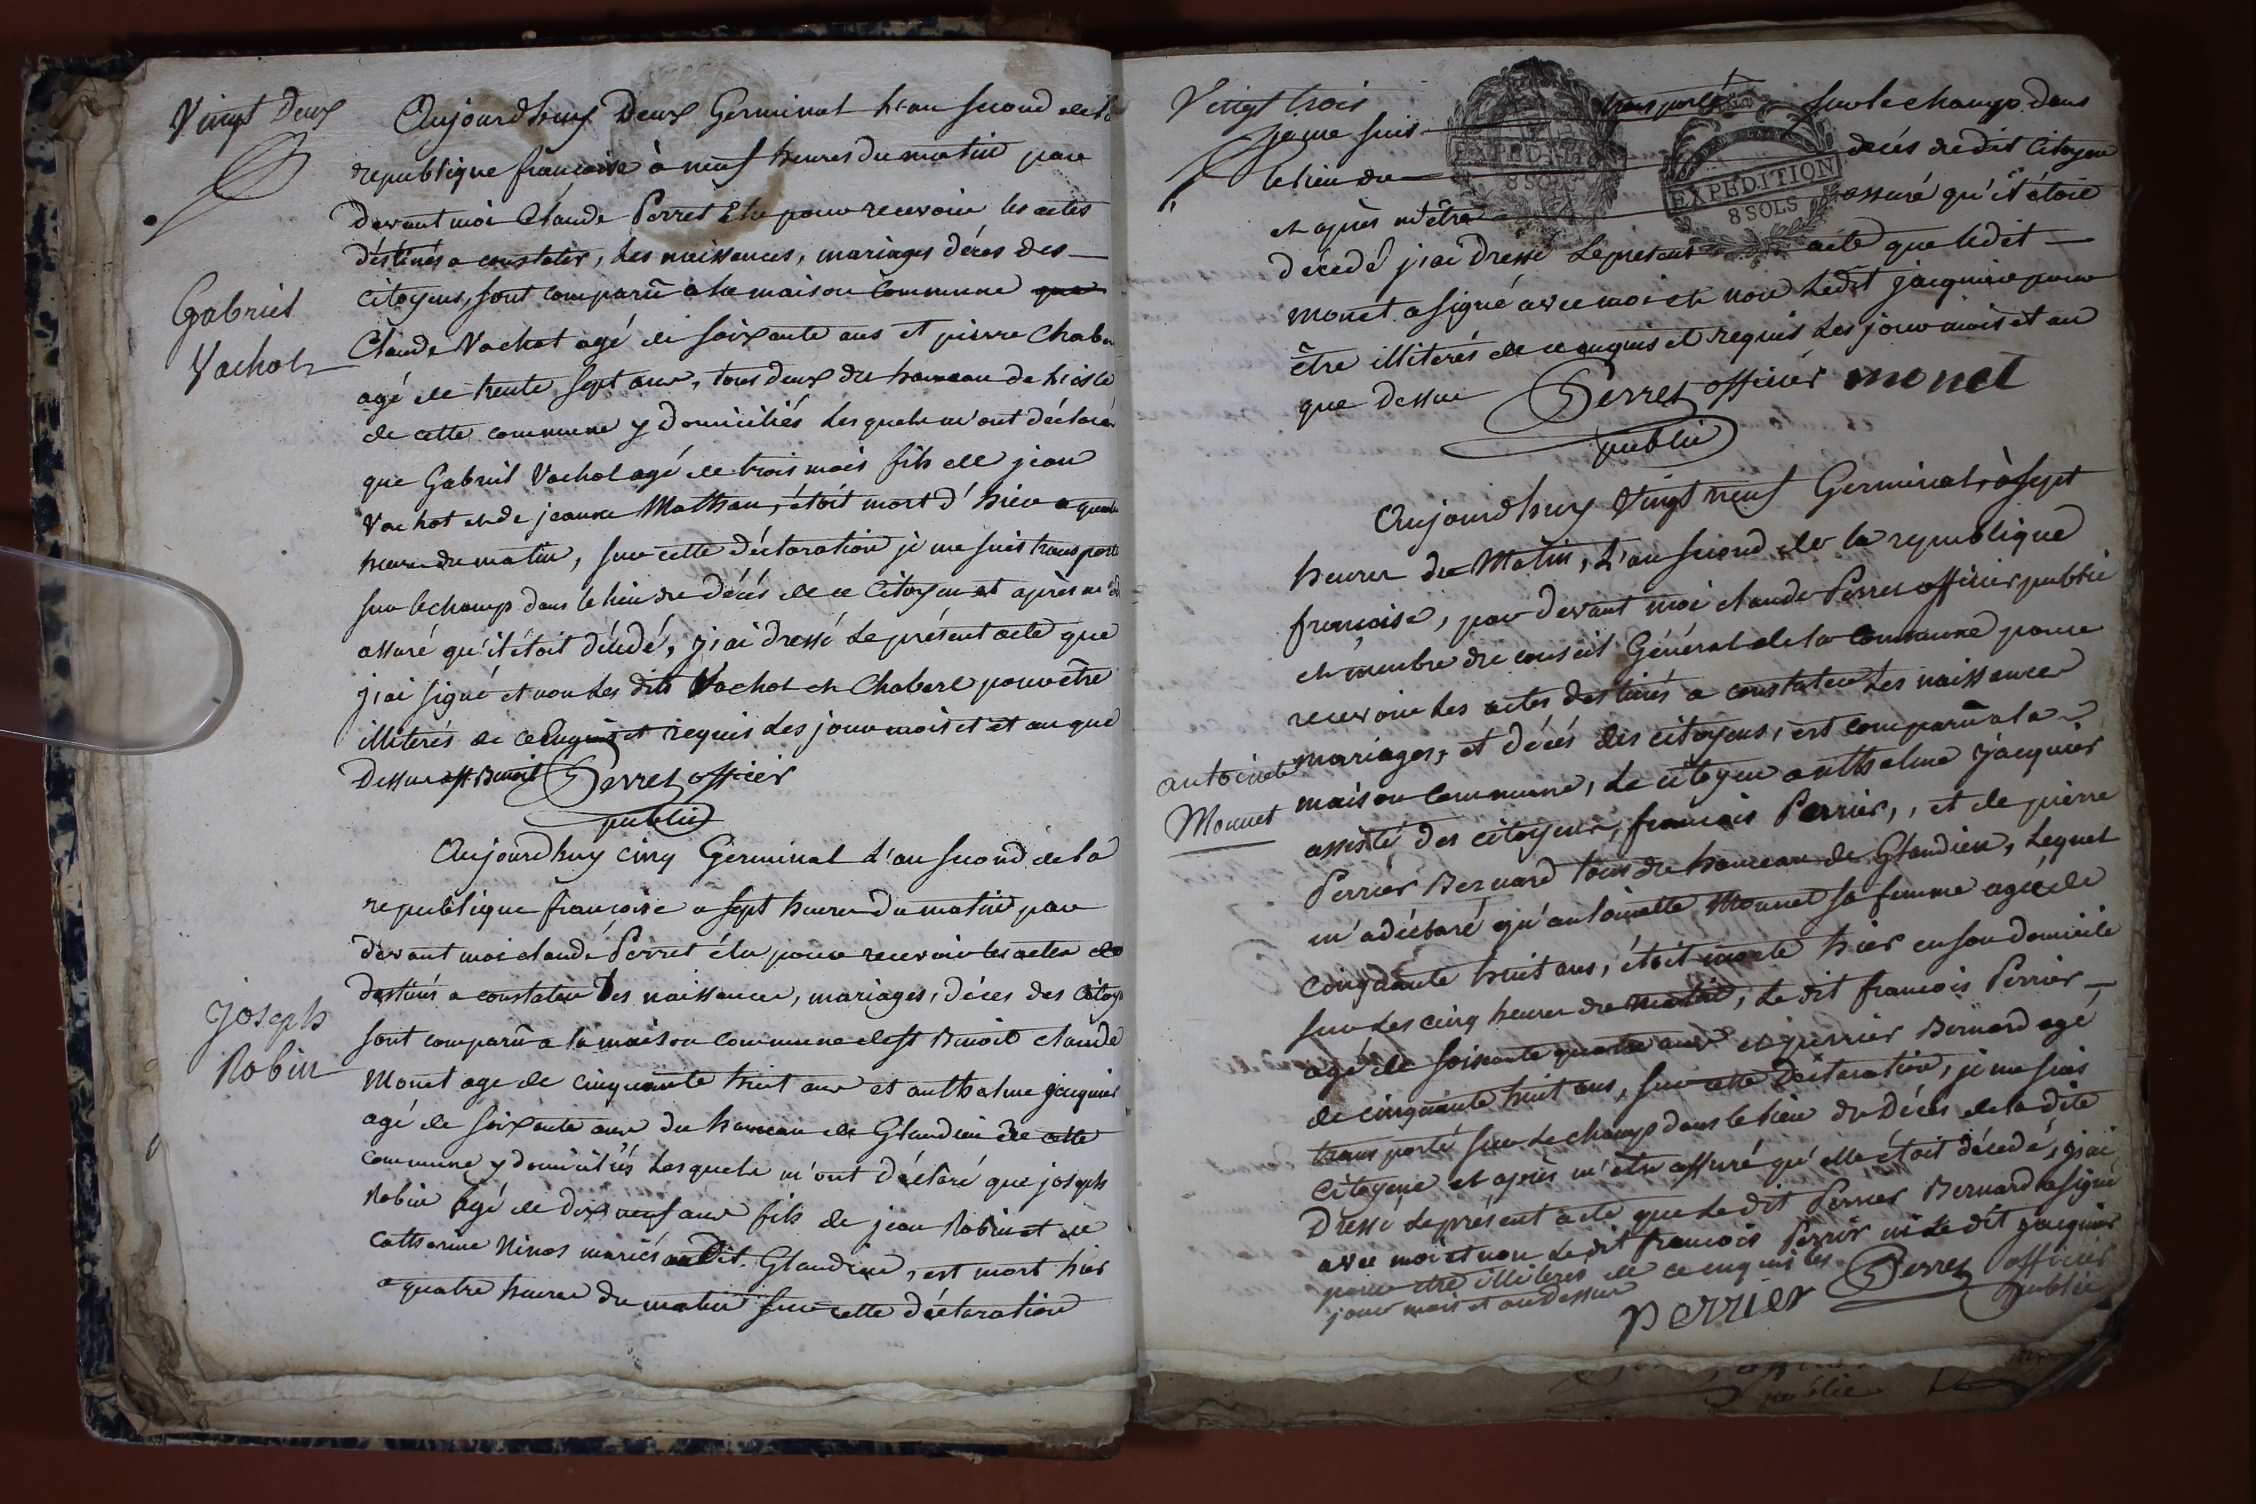 Vingt Deux
Gabriel
Vachot
Joseph
Robin
Aujourdhuy Deux Germinal L'an second de la
republique françoise à neuf heures du matin par
devant moi Claude Perret Elu pour recevoir les actes
déstinés a constater, les naissances, mariages décés des
Citoyens, sont comparû a la maison Commune
Claude Vachot agé de soixante ans et pierre Chaber
agé de trente sept ans, tous deux du hameau de
de cette commune y domiciliés Lesquels m'ont déclaré
que Gabriel Vachot agé de trois mois fils de jean
Vachot et de jeanne Mathan, étoit mort d'hier a
heure du matin, sur cette déclaration je me suis transporté
sur le champ dans le lieu du Décés de ce Citoyen et après m'
assuré qu'il étoit décedé, j'ai dressé Le présent acte que
j'ai signé et non Les dits Vachot et Chabert pour être
illiterés de ce Enquis et requis Les jour mois et et an que
Dessus a st. Benoit Perret officier
public
Aujourdhuy cinq Germinal L'an second de la
republique françoise a sept heures du matin par
devant moi claude Perret élu pour recevoir les actes
destinés a constater Les naissances, mariages, déces des Citoy
sont comparû a la maison commune de st Benoit claude
Monet age de cinquante huit ans et anthelme jacquier
agé de soixante ans du hameau de Glandieu de cette
Commune y domiciliés Lesquels m'ont déclaré que joseph
Robin âgé de dix neuf ans fils de jean Robin et de
Catherine Ninos mariés audit Glandieu, est mort hier
a quatre heures du matin sur cette déclaration
Vingt trois
je me suis transporté sur le champ dans
le lieu du decés dudit Citoyen
et après m'être assuré qu'il étoit
décedé j'ai Dressé Le present acte que ledit
monet a signé avec moi et non Ledit jacquier pour
être illiterés de ce enquis et requis Les jour mois et an
que Dessus Perret officier monet
public
EXPEDITION
8 SOLS
EXPEDITION
8 SOLS
Aujourdhuy Vingt neuf Germinal, à sept
heures du Matin, L'an second de la republique
françoise, par devant moi claude Perret officier public
et membre du conseil Général de la Commune pour
recevoir Les actes destinés a constater Les naissances
antoinete
Monnet
mariages, et décés des citoyens, est comparû a la
maison Commune, Le citoyen anthelme Jacquier
assisté des citoyens, françois Perrier, et de pierre
Perrier Bernard tous du hameau de Glandieu, Lequel
m'a déclaré qu'antoinette Monnet sa femme agée de
cinquante huit ans, étoit morte hier en son domicile
sur Les cinq heures du matin, Le dit francois Perrier
agé de soixante quatre ans et perrier Bernard agé
de cinquante huit ans, sur cette Déclaration, je me suis
transporté sur Le champ dans le lieu du Décés de la dite
Citoyene et après m'être assuré qu'elle étoit décedé, j'ai
Dressé Le présent acte que Ledit Perrier Bernard a signé
avec moi et non Ledit francois Perrier ni Le dit jacquier
pour être illiterés de ce enquis les
jour mois et an Dessus
Perrier Perret officier
public
public